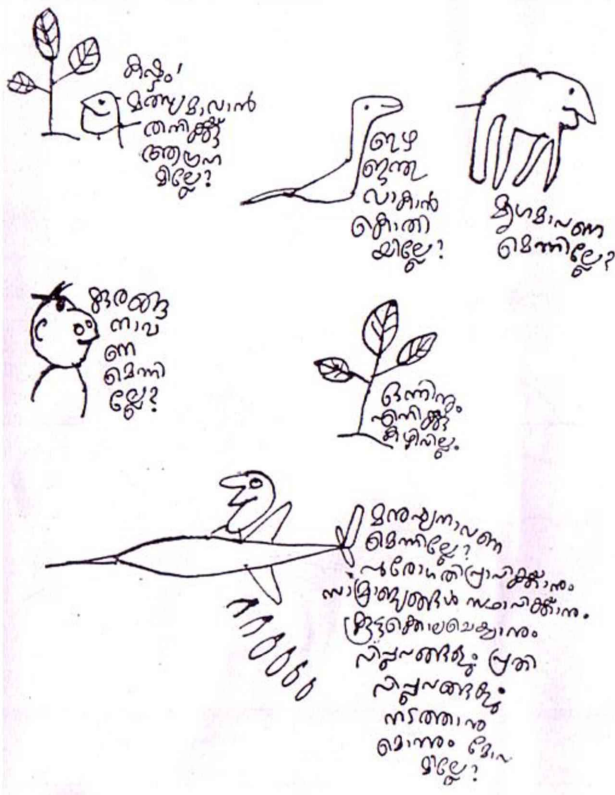 കഷ്ടം!
മത്സ്യമാവാൻ
തനിക്ക്
ആഗ്രഹ
മില്ലേ?
ഇഴ
ജന്തു
വാകാൻ
കൊതി
യില്ലേ?
മൃഗമാവണ
മെന്നില്ലേ?
കുരങ്ങ
നാവ
ണ
മെന്നി
ല്ലേ?
ഒന്നിനും
എനിക്കു
കഴിവില്ല.
മനുഷ്യനാവണ
മെന്നില്ലേ?
പുരോഗതിപ്രാപിക്കാനും
സാമ്രാജ്യങ്ങൾ സ്ഥാപിക്കാനും
കൂട്ടക്കൊലചെയ്യാനും
വിപ്ലവങ്ങളും പ്രതി
വിപ്ലവങ്ങളും
നടത്താൻ
മൊന്നും മോഹ
മില്ലേ?